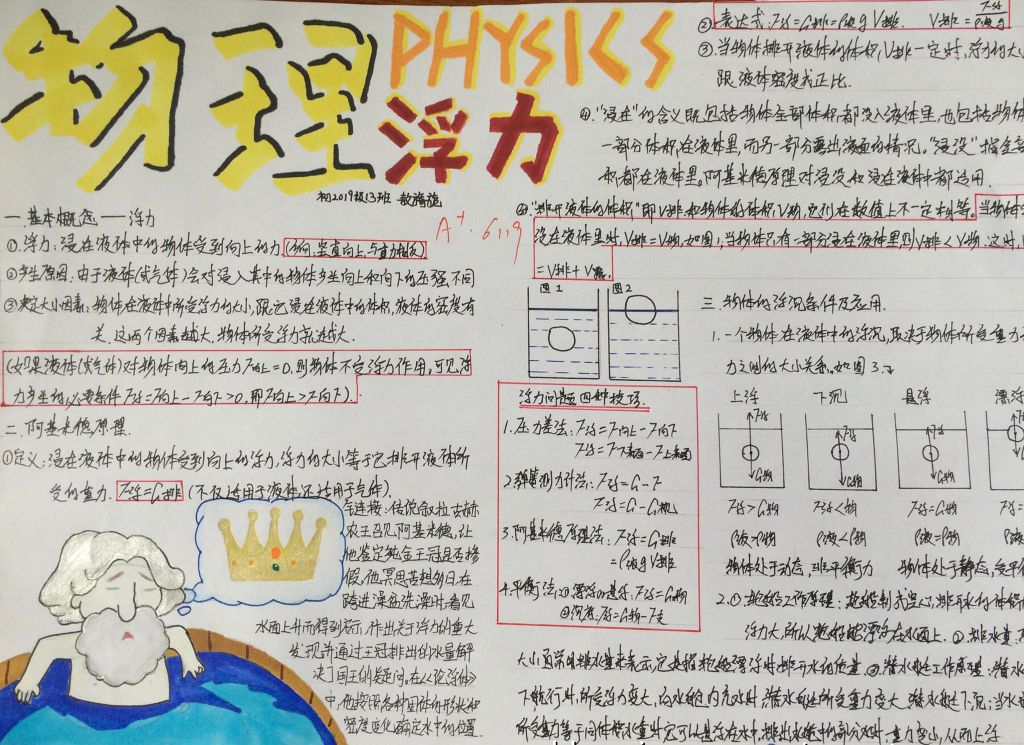 物理
PHYSICS
浮力
初2019级13班
A+ 6.19
一.基本概念——浮力
①浮力:浸在液体中的物体受到向上的力(方向:竖直向上,与重力相反)
②产生原因:由于液体(或气体)会对浸入其中的物体产生向上和向下的压强不同
③决定大小因素:物体在液体中所受浮力的大小,跟它浸在液体中的体积,液体的密度有
关.这两个因素越大,物体所受浮力就越大.
(如果液体(或气体)对物体向上的压力F向上=0,则物体不受浮力作用,可见浮
力产生的必要条件F浮=F向上-F向下>0,即F向上>F向下).
二.阿基米德原理.
①定义:浸在液体中的物体受到向上的浮力,浮力的大小等于它排开液体所
受的重力.F浮=G排(不仅适用于液体,还适用于气体).
连接:传说叙拉古赫
农王召见阿基米德,让
他鉴定纯金王冠是否掺
假.他冥思苦想多日,在
跨进澡盆洗澡时,看见
水面上升而得到启示,作出关于浮力的重大
发现,并通过王冠排出的水量解
决了国王的疑问.在《论浮体》
中,他按照各种固体的形状和
密度变化确定水中的位置.
②表达式:F浮=G排=ρ液gV排. V排=F浮/ρ液g
③当物体排开液体的体积V排一定时,浮力的大
跟液体密度成正比.
④."浸在"的含义既包括物体全部体积都没入液体里,也包括物体
一部分体积在液体里,而另一部分露出液面的情况."浸没"指全部
积都在液体里.阿基米德原理对浸没和浸在液体中都适用.
"排开液体的体积"即V排和物体的体积V物,它们在数值上不一定相等.当物体
浸在液体里时,V排=V物,如图1,当物体只有一部分浸在液体里,则V排<V物.这时,
=V排+V露.
图1 图2
三.物体的浮沉条件及应用.
1.一个物体在液体中的浮沉,取决于物体所受重力
力之间的大小关系.如图3.
上浮 下沉 悬浮 漂浮
F浮 F浮 F浮 F浮
G物 G物 G物
F浮>G物 F浮<物 F浮=G物
ρ液>ρ物 ρ液<ρ物 ρ液=ρ物
物体处于动态,非平衡力 物体处于静态,受平
浮力问题四种技巧.
1.压力差法:F浮=F向上-F向下
F浮=F下表面-F上表面
2.弹簧测力计法:F浮=G-F
F浮=G-G视
3.阿基米德原理法:F浮=G排
=ρ液gV排
4.平衡法:①漂浮和悬浮:F浮=G物
②沉底:F浮=G物-F支
2.①轮船工作原理:轮船制成空心,排开水的体积
浮力大,所以轮船能漂浮在水面上.②排水量:
大小通常用排水量来表示,它是指轮船漂浮时排开水的质量.③潜水艇工作原理:潜水
下航行时,所受浮力不变,向水舱内充水时,潜水艇所受重力变大,潜水艇下沉;当水
所受重力等于同体积水重时,它可以悬浮在水中,排出水舱中的部分水时,重力变小,从而上浮